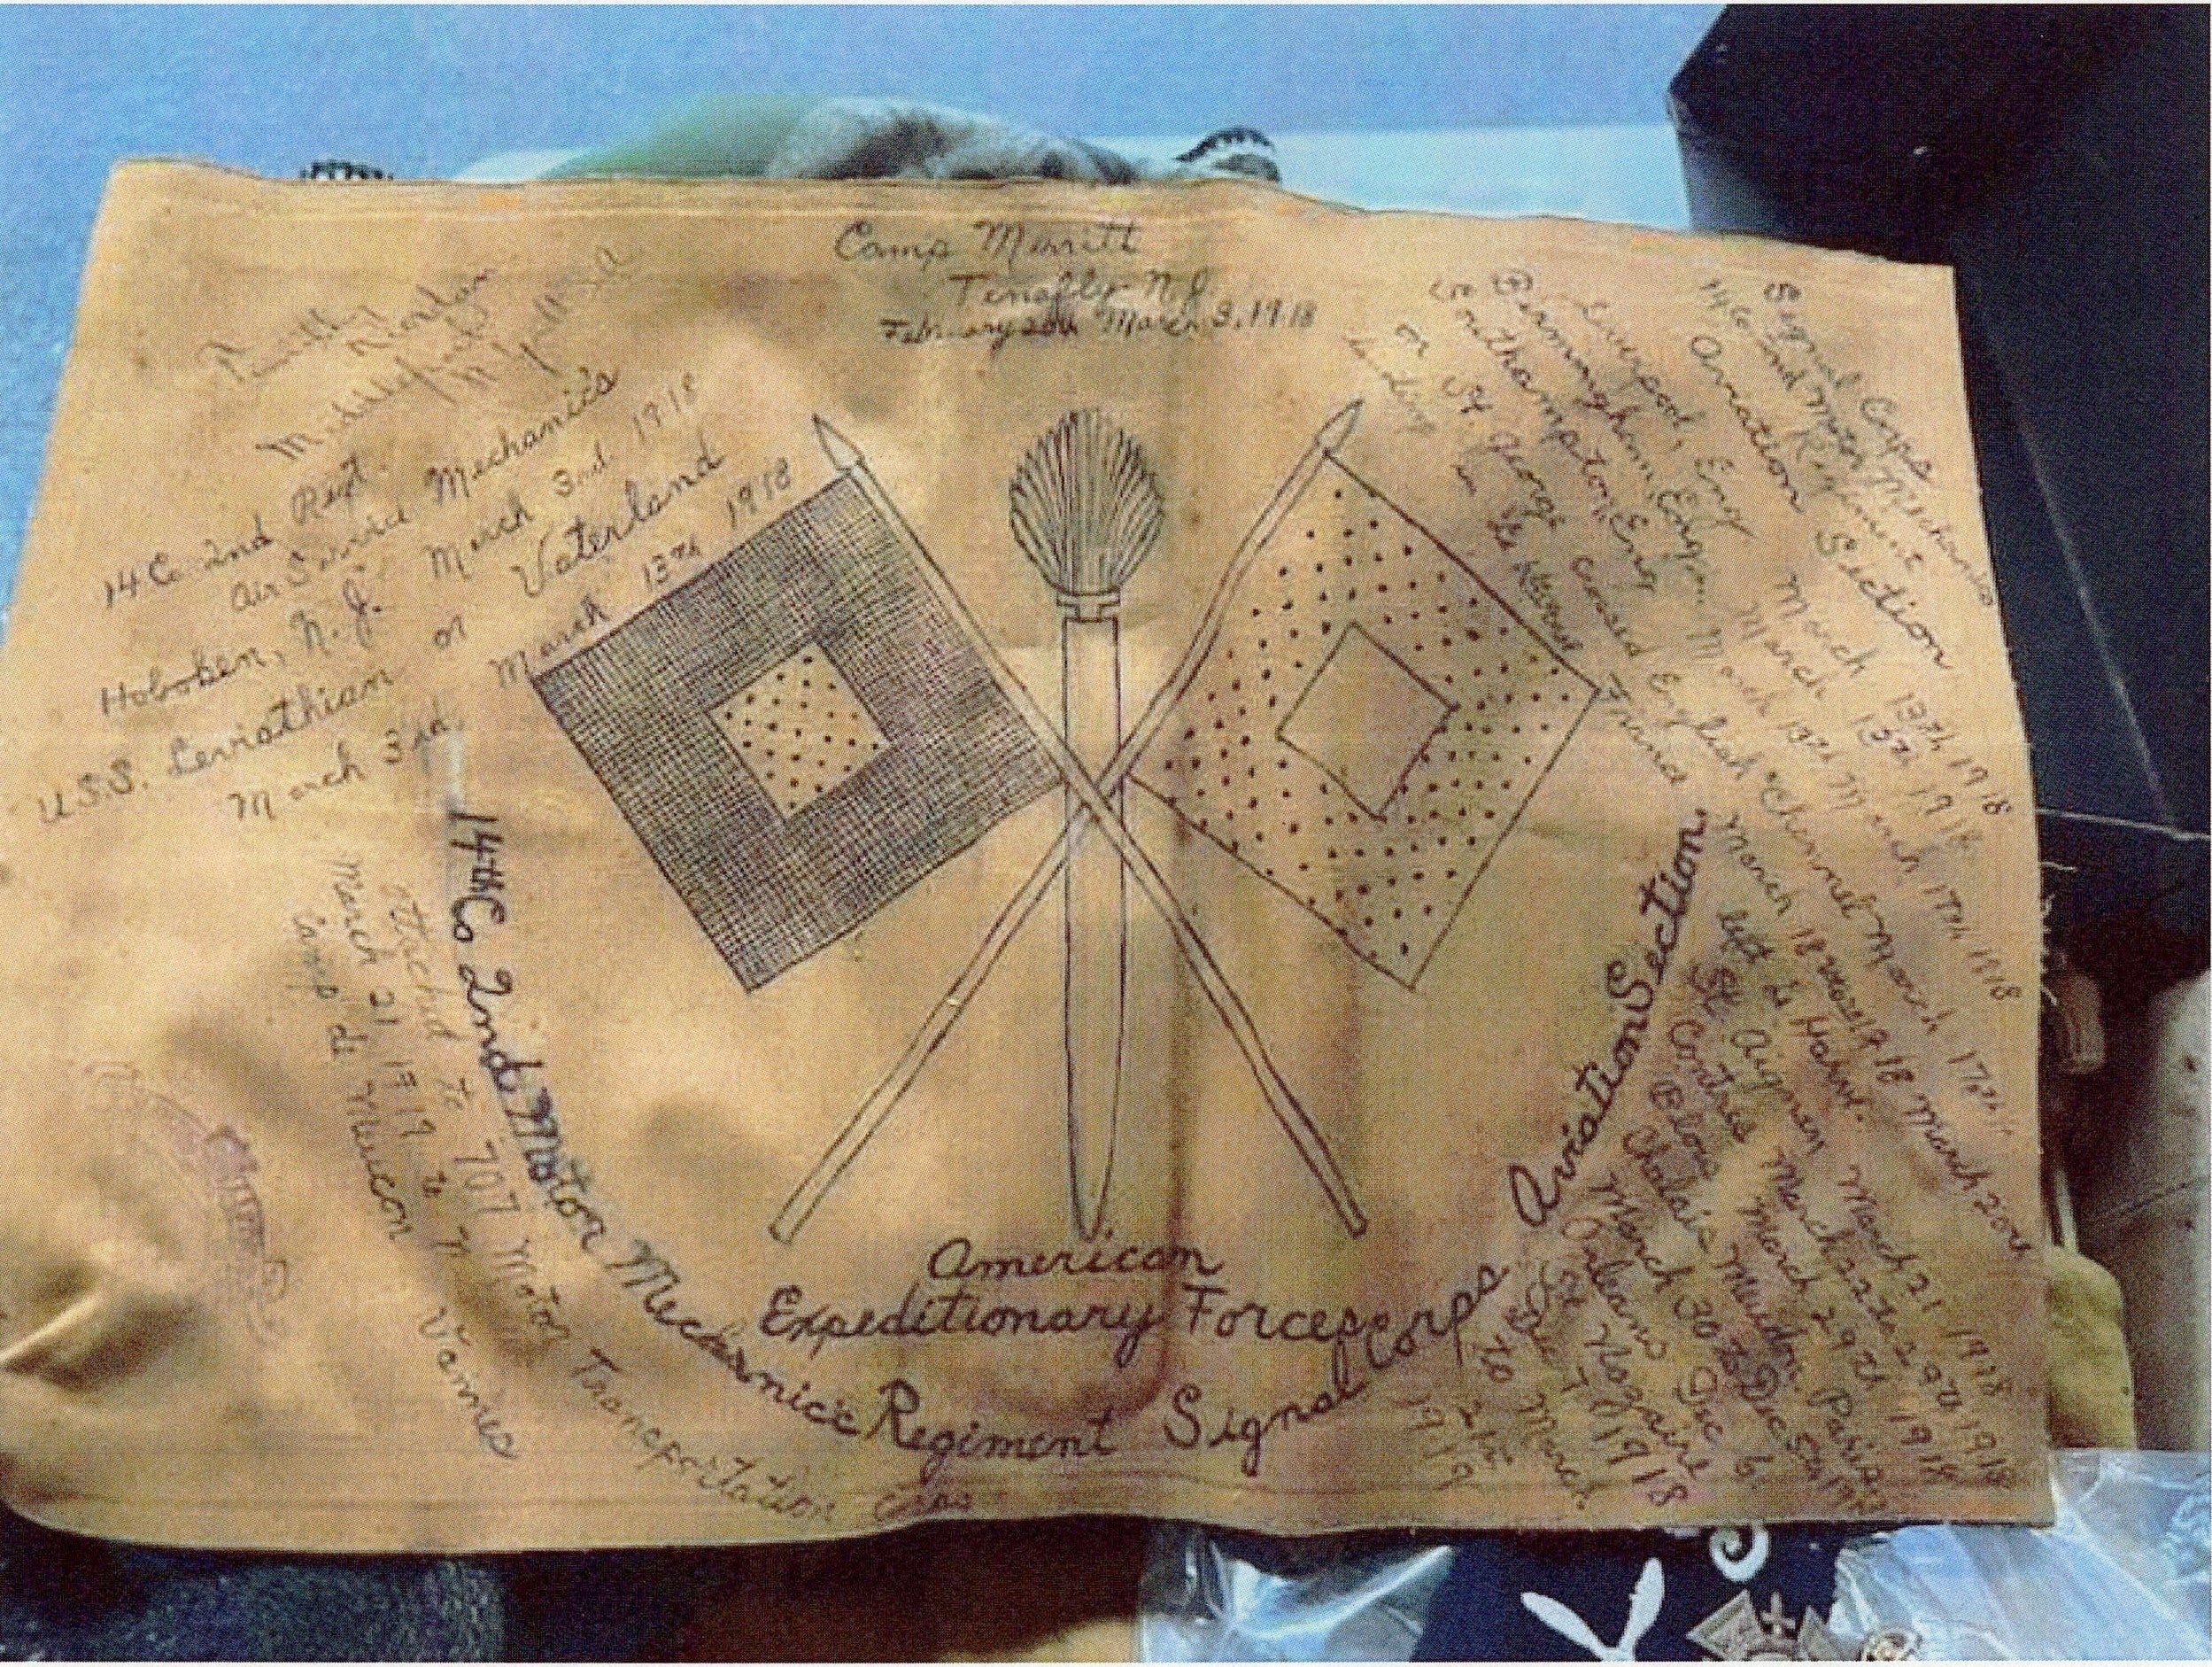 Camp Merritt
Tenafly N.J.
February 20th March 3, 1918
Timothy
14 Co 2nd Regt.
Air Service Mechanic's
Hoboken, N.J. March 3rd 1918
U.S.S. Leviathian or Vaterland
March 3rd March 13th 1918
Signal Corps
14 Co 2nd Motor Mechanics
Regiment
Aviation Section
Liverpool, Eng March 13th 1918
Birmingham, Eng March 13th 1918
Southampton, Eng March 13th March 17th 1918
on St George crossed English Channel March 17th
in Le Havre France March 18 1918 March 20th
left Le Havre
St. Aignan March 21 1918
Contres March 22nd 29th 1918
Blois March 29th 1918
Chalais Meudon Paris
March 30th Dec 5th 1918
Orleans Dec 6
Dec 7 1918
to March
21st
1919
14th Co 2nd Motor Mechanic's Regiment Signal Corps Aviation Section.
American
Expeditionary Forces
Attached to 707 Motor Transportation Corps
March 21 1919 to
Camp de Meucon Vannes